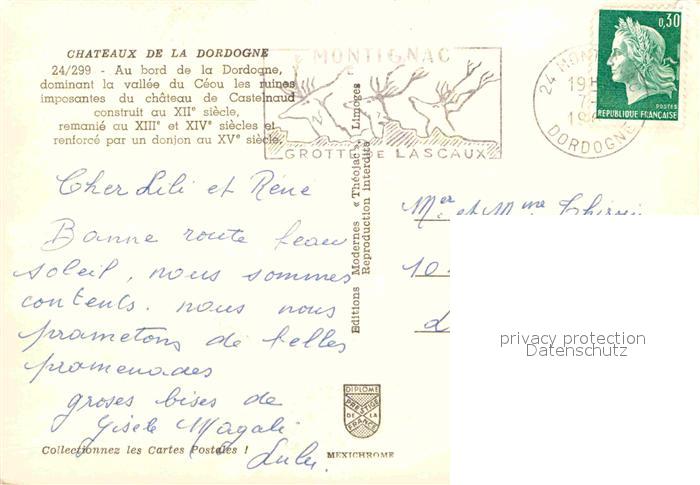 CHATEAUX DE LA DORDOGNE
24/299 - Au bord de la Dordogne,
dominant la vallée du Céou les ruines
imposantes du château de Castelnaud
construit au XIIe siècle,
remanié au XIIIe et XIVe siècles et
renforcé par un donjon au XVe siècle.
MONTIGNAC
GROTTE DE LASCAUX
24 MONT
19H
7-
19
DORDOGNE
0,30
POSTES
REPUBLIQUE FRANÇAISE
Cher Lili et Réné
Bonne route beau
soleil, nous sommes
contents. nous nous
prometons de belles
promenades
groses bises de
Gisèle Magali
Lulu.
Collectionnez les Cartes Postales !
Editions Modernes « Théojac », Limoges
Reproduction interdite
Mer et Mme
10
DIPLOME
PRESTIGE
DE LA
FRANCE
MEXICHROME
privacy protection
Datenschutz